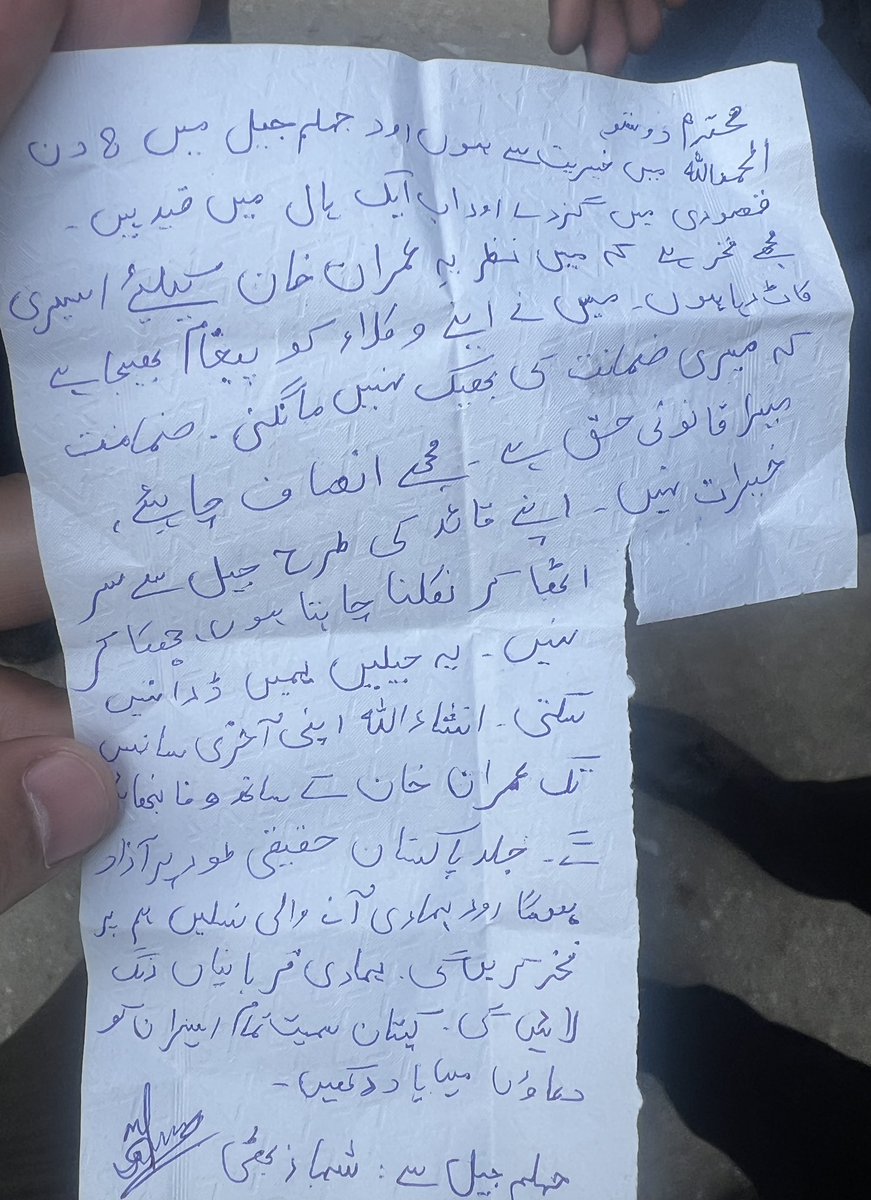 محترم دوستو
الحمداللہ میں خیریت سے ہوں اور جہلم جیل میں 8 دن
قصوری میں گزرے اور اب ایک ہال میں قید ہیں۔
مجھے فخر ہے کہ میں نظریہ عمران خان کیلئے اسیری
کاٹ رہا ہوں۔ میں نے اپنے وکلاء کو پیغام بھیجا ہے
کہ میری ضمانت کی بھیک نہیں مانگنی۔ ضمانت
میرا قانونی حق ہے۔ مجھے انصاف چاہیئے،
خیرات نہیں۔ اپنے قائد کی طرح جیل سے سر
اٹھا کر نکلنا چاہتا ہوں، جھکا کر
نہیں۔ یہ جیلیں ہمیں ڈرا نہیں
سکتی۔ انشاءاللہ اپنی آخری سانس
تک عمران خان کے ساتھ وفا نبھائیں
گے۔ جلد پاکستان حقیقی طور پر آزاد
ہوگا اور ہماری آنے والی نسلیں ہم پر
فخر کریں گی۔ ہماری قربانیاں رنگ
لائیں گی۔ کپتان سمیت تمام اسیران کو
دعاؤں میں یاد رکھیں۔
جہلم جیل سے: شہباز بھٹی